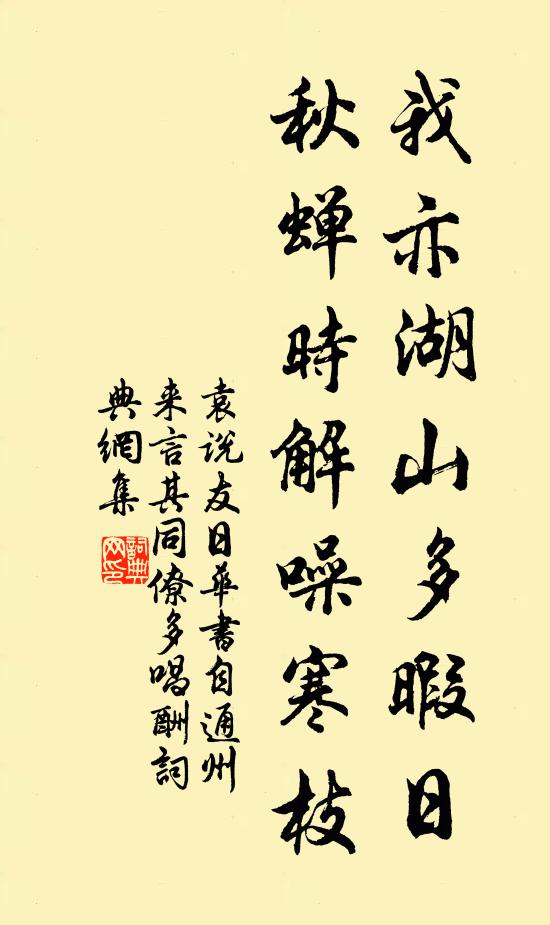 我亦湖山多暇日
秋蝉時解噪寒枝
袁说友日華書自通州
来言其同僚多唱酬詞
典網集
詞典
网印